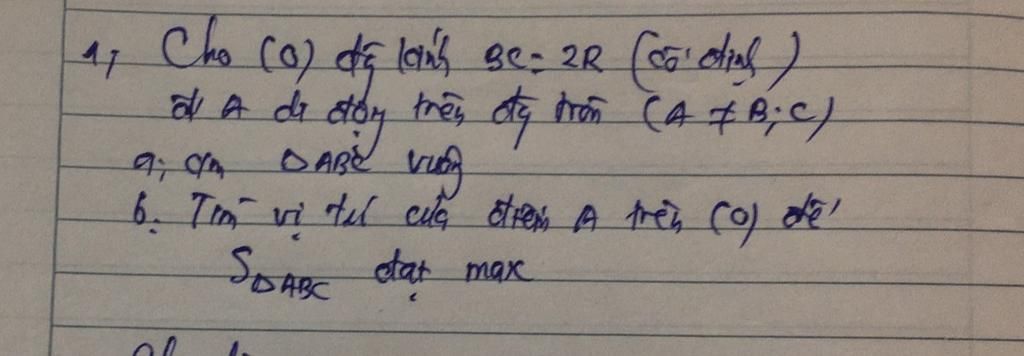 1, Cho (O) đg kính BC = 2R (cố định)
đ' A di động trên đg tròn (A ≠ B; C)
a, cm ΔABC vuông
b. Tìm vị trí của điểm A trên (O) để
SΔABC đạt max